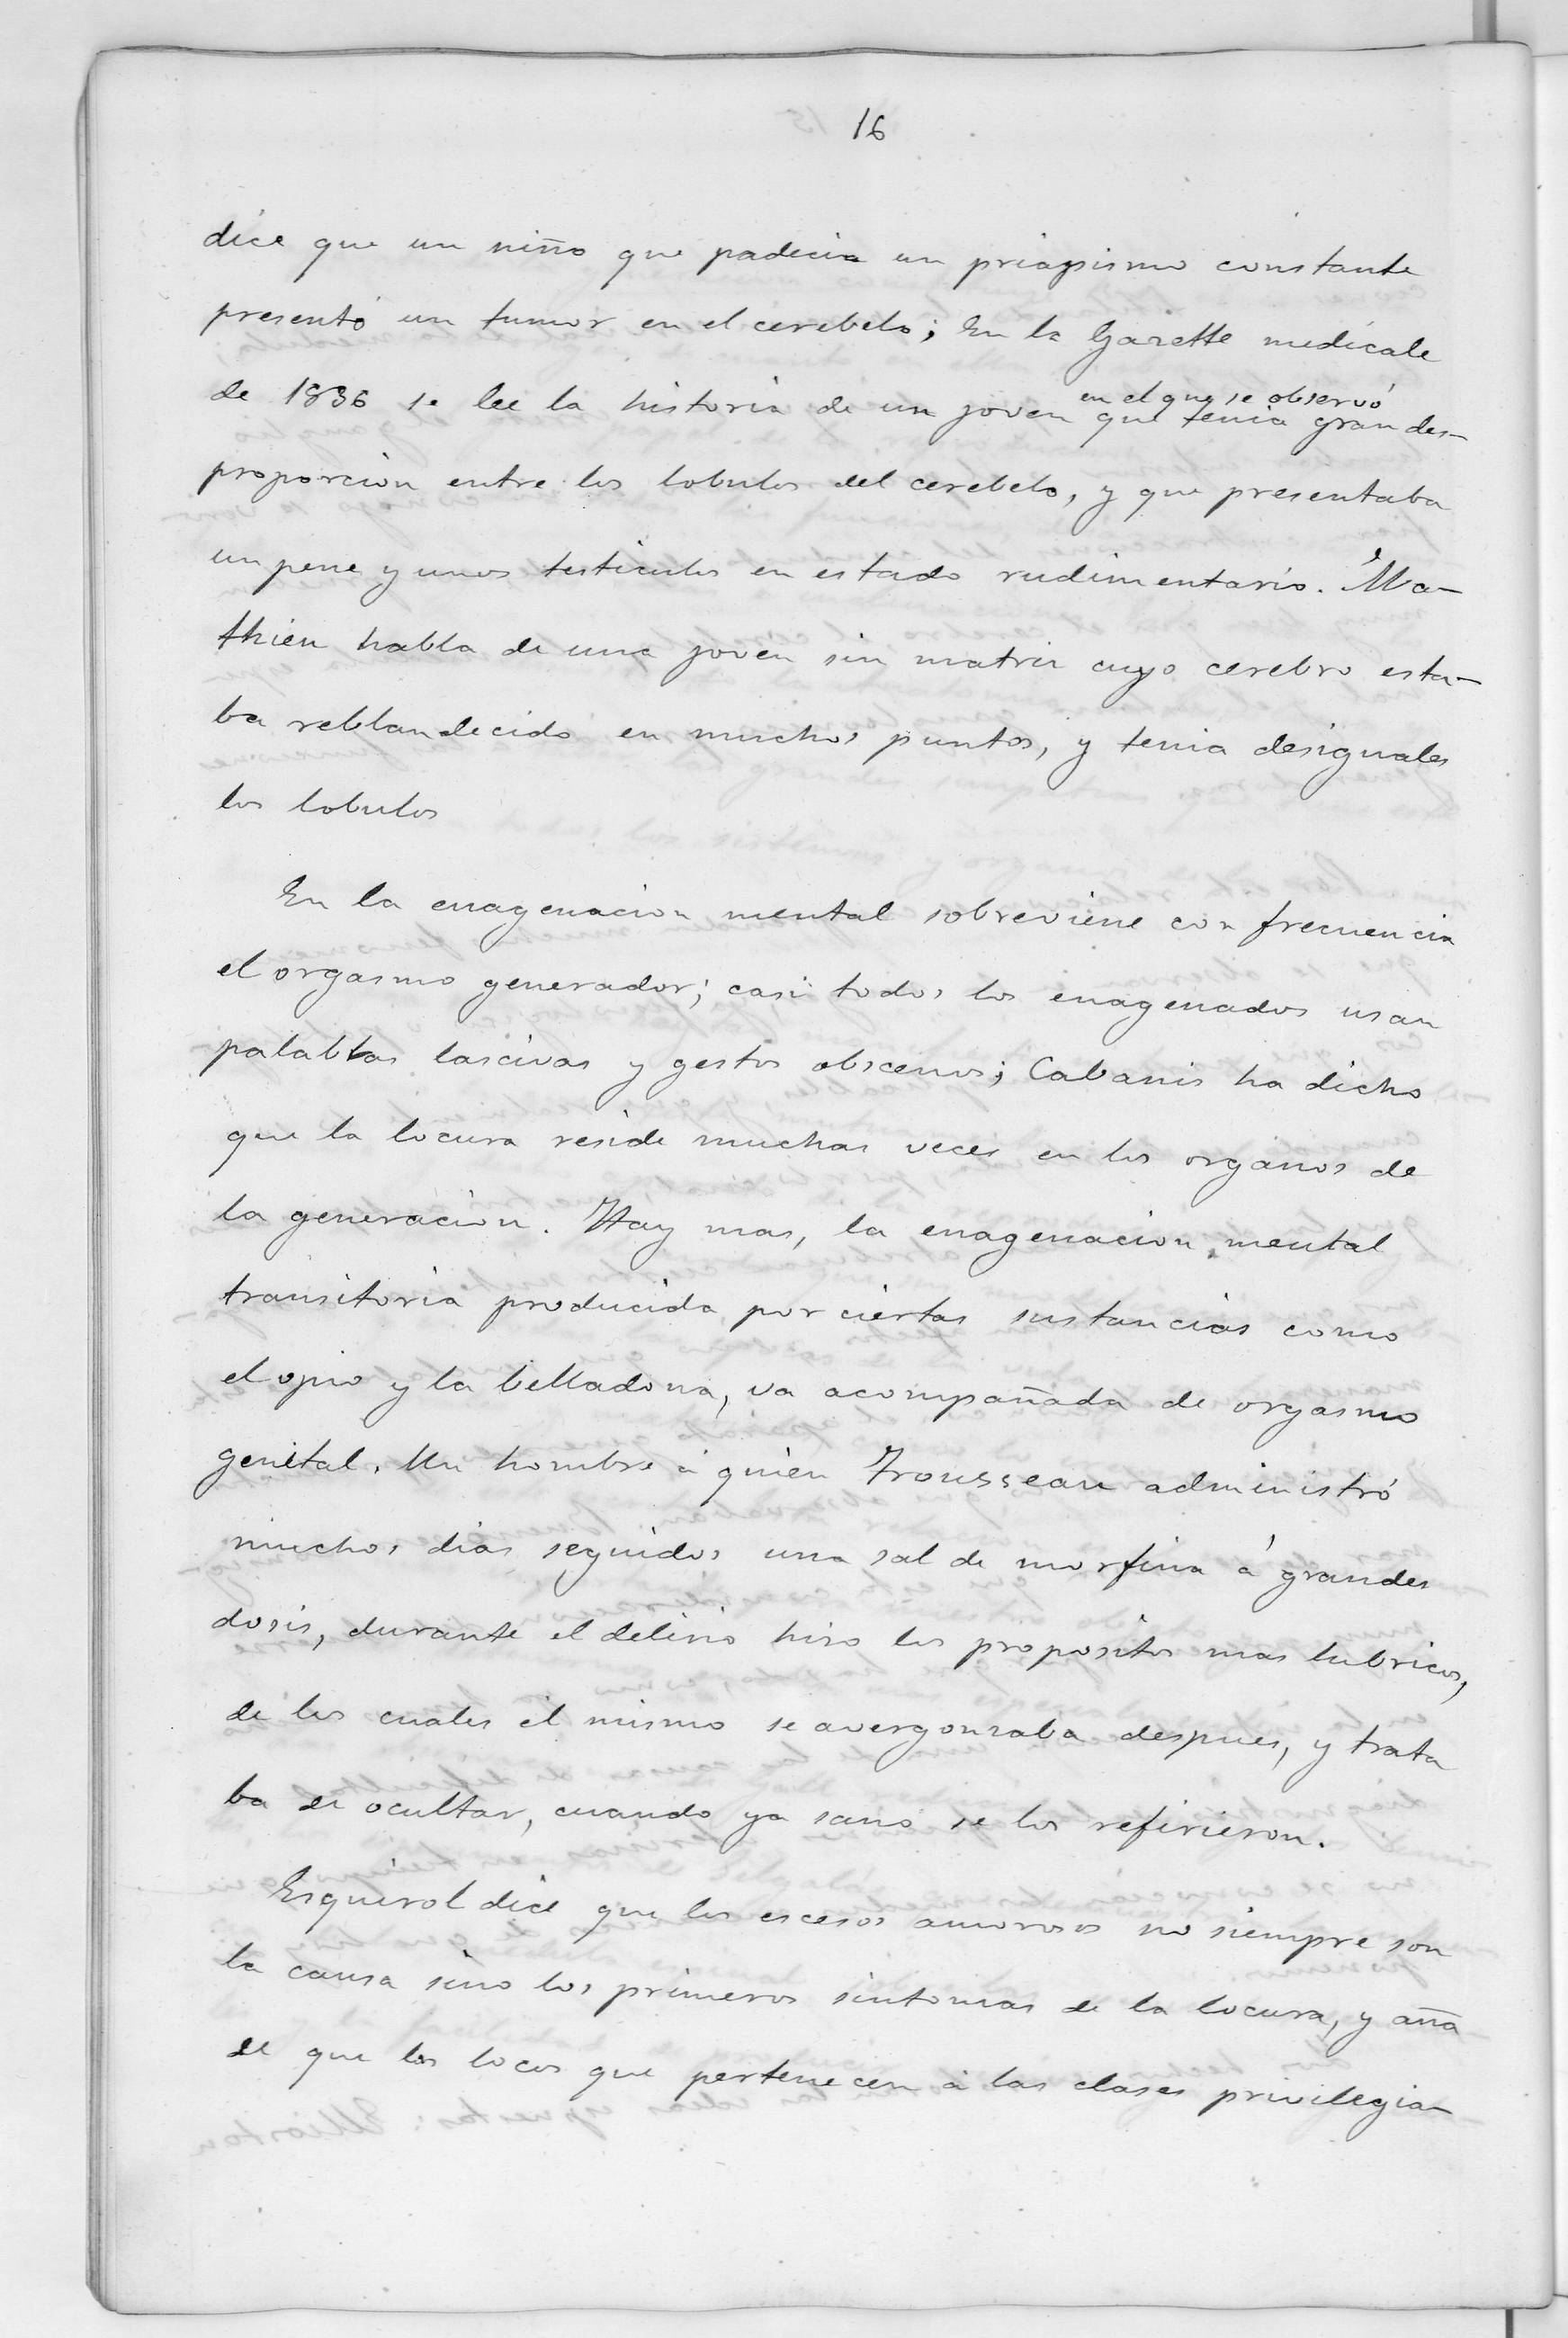 16
dice que un niño que padecia un priapismo constante
presentó un tumor en el cerebelo; En la Gazette medicale
en el que se observó
de 1836 se lee la historia de un joven que tenia gran des-
proporcion entre los lobulos del cerebelo, y que presentaba
un pene y unos testiculos en estado rudimentario. Ma-
thieu habla de una joven sin matriz cuyo cerebro esta-
ba reblandecido en muchos puntos, y tenia desiguales
los lobulos
En la enagenacion mental sobreviene con frecuencia
el orgasmo generador; casi todos los enagenados usan
palabras lascivas y gestos obscenos; Cabanis ha dicho
que la locura reside muchas veces en los organos de
la generacion. Hay mas, la enagenacion mental
transitoria producida por ciertas sustancias como
el opio y la belladona, va acompañada de orgasmo
genital. Un hombre á quien Trousseau administró
muchos dias seguidos una sal de morfina á grandes
dosis, durante el delirio hizo los propositos mas lubricos,
de los cuales él mismo se avergonzaba despues, y trata
ba de ocultar, cuando ya sano se los refirieron.
Esquirol dice que los escesos amorosos no siempre son
la causa sino los primeros sintomas de la locura, y aña
de que los locos que pertenecen á las clases privilegia-